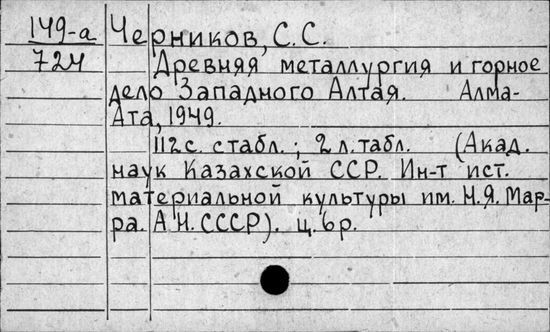 149-а Черников, С. С.
724
Древняя металлургия и горное
дело Западного Алтая. Алма-
Ата, 1949.
112 с. с табл.; 2 л. табл. (Акад.
наук Казахской ССР. Ин-т ист.
материальной культуры им. Н. Я. Мар-
ра. А.Н. СССР). ц. 6 р.